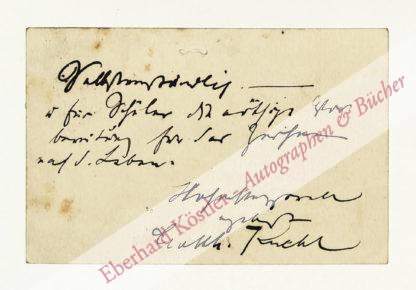 Selbstverständlich. —
u für Schüler die nötige Vor
bereitung für das Zeichnen
nach d. Leben.
Hochachtungsvoll
Eberhard Köstler Autographen & Bücher